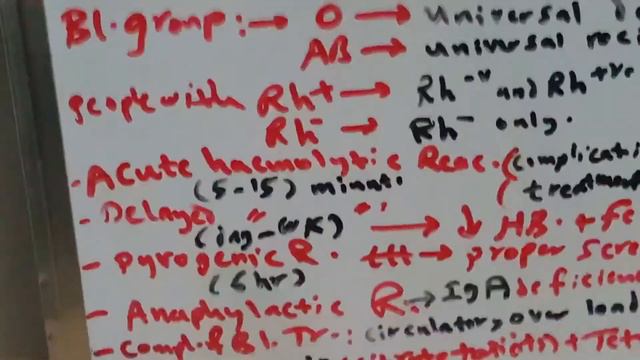 Bl. group :→ O → Universal
AB → universal reci
people with Rh+ → Rh-v and Rh+ve
Rh- → Rh- only.
- Acute haemolytic Reac. (complicati
(5-15) minut. ( treatment
- Delayed " " → ↓ HB. + Fe
(ing-wk)
- Pyrogenic R. ttt → proper scre
(6hr)
- Anaphylactic R. → IgA deficien
- Compl. of Bl. Tr.: circulatory over load